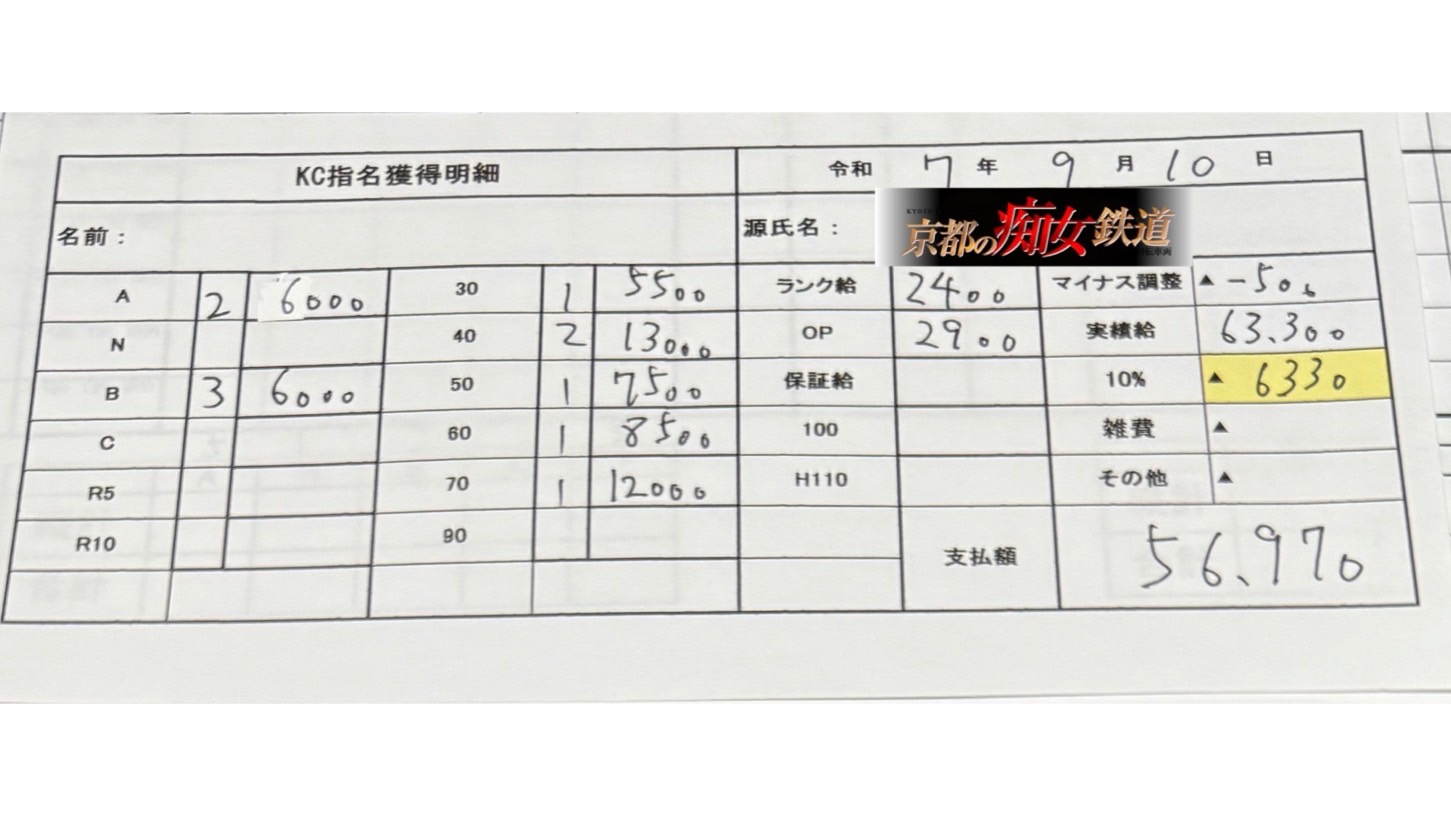 KC指名獲得明細 令和 7 年 9 月 10 日
名前： 源氏名： 京都の痴女鉄道
A 2 6000 30 1 5500 ランク給 2400 マイナス調整 ▲ -500
N 40 2 13000 OP 2900 実績給 63.300
B 3 6000 50 1 7500 保証給 10% ▲ 6330
C 60 1 8500 100 雑費 ▲
R5 70 1 12000 H110 その他 ▲
R10 90 支払額 56.970